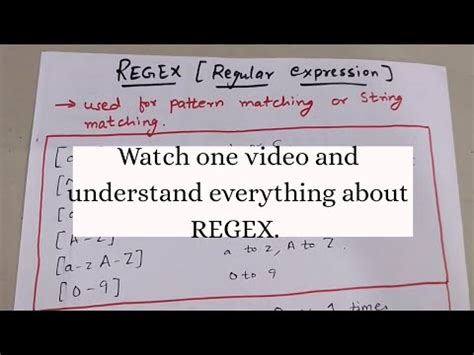 REGEX [Regular expression]
→ used for pattern matching or String
matching.
Watch one video and
understand everything about
REGEX.
[A-Z]
[a-z A-Z] a to z, A to Z.
[0-9] 0 to 9
times